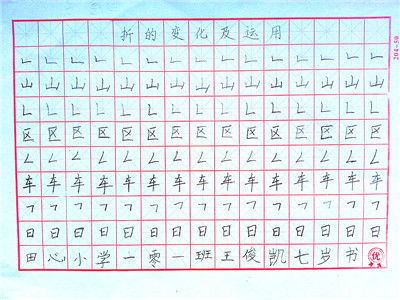 折的变化及运用
㇗㇗㇗㇗㇗㇗㇗㇗㇗㇗㇗㇗㇗㇗㇗
山山山山山山山山山山山山山山山
㇗㇗㇗㇗㇗㇗㇗㇗㇗㇗㇗㇗㇗㇗㇗
区区区区区区区区区区区区区区区
㇜㇜㇜㇜㇜㇜㇜㇜㇜㇜㇜㇜㇜㇜㇜
车车车车车车车车车车车车车车车
㇕㇕㇕㇕㇕㇕㇕㇕㇕㇕㇕㇕㇕㇕㇕
日日日日日日日日日日日日日日日
田心小学一零一班王俊凯七岁书 优